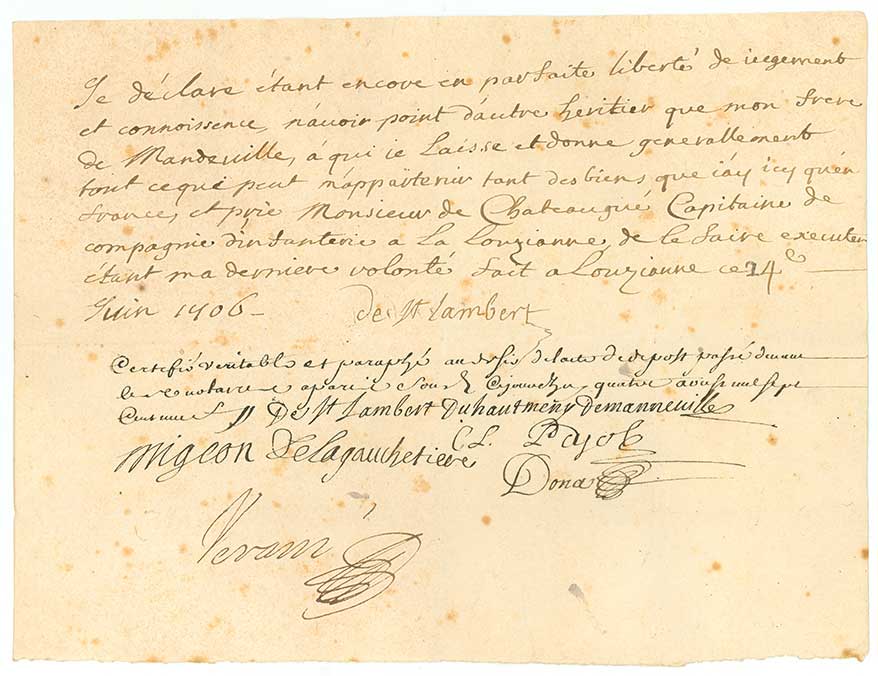 Je déclare étant encore en parfaite liberté de iugement
et connoissence, n'avoir point d'autre heritier que mon frere
de Mandeville, á qui ie Laisse et donne generallement
tout ce qui peut m'appartenir tant des biens que iáy icy qu'en
france, et prie Monsieur de Chateaugué Capitaine de
compagnie d'infanterie a La Louzianne, de le faire executer
étant ma derniere volonté fait a Louzianne ce 14e
Juin 1706
de St Lambert
Certifié veritable et paraphé au desir de lacte de depost passé devant
les notaires a paris ce jourdhuy quatre aoust mil sept
Cent neuf
De St Lambert Duhautmeny Demanneville
migeon Delagauchetiere C L. Pajot
Dona
Verani